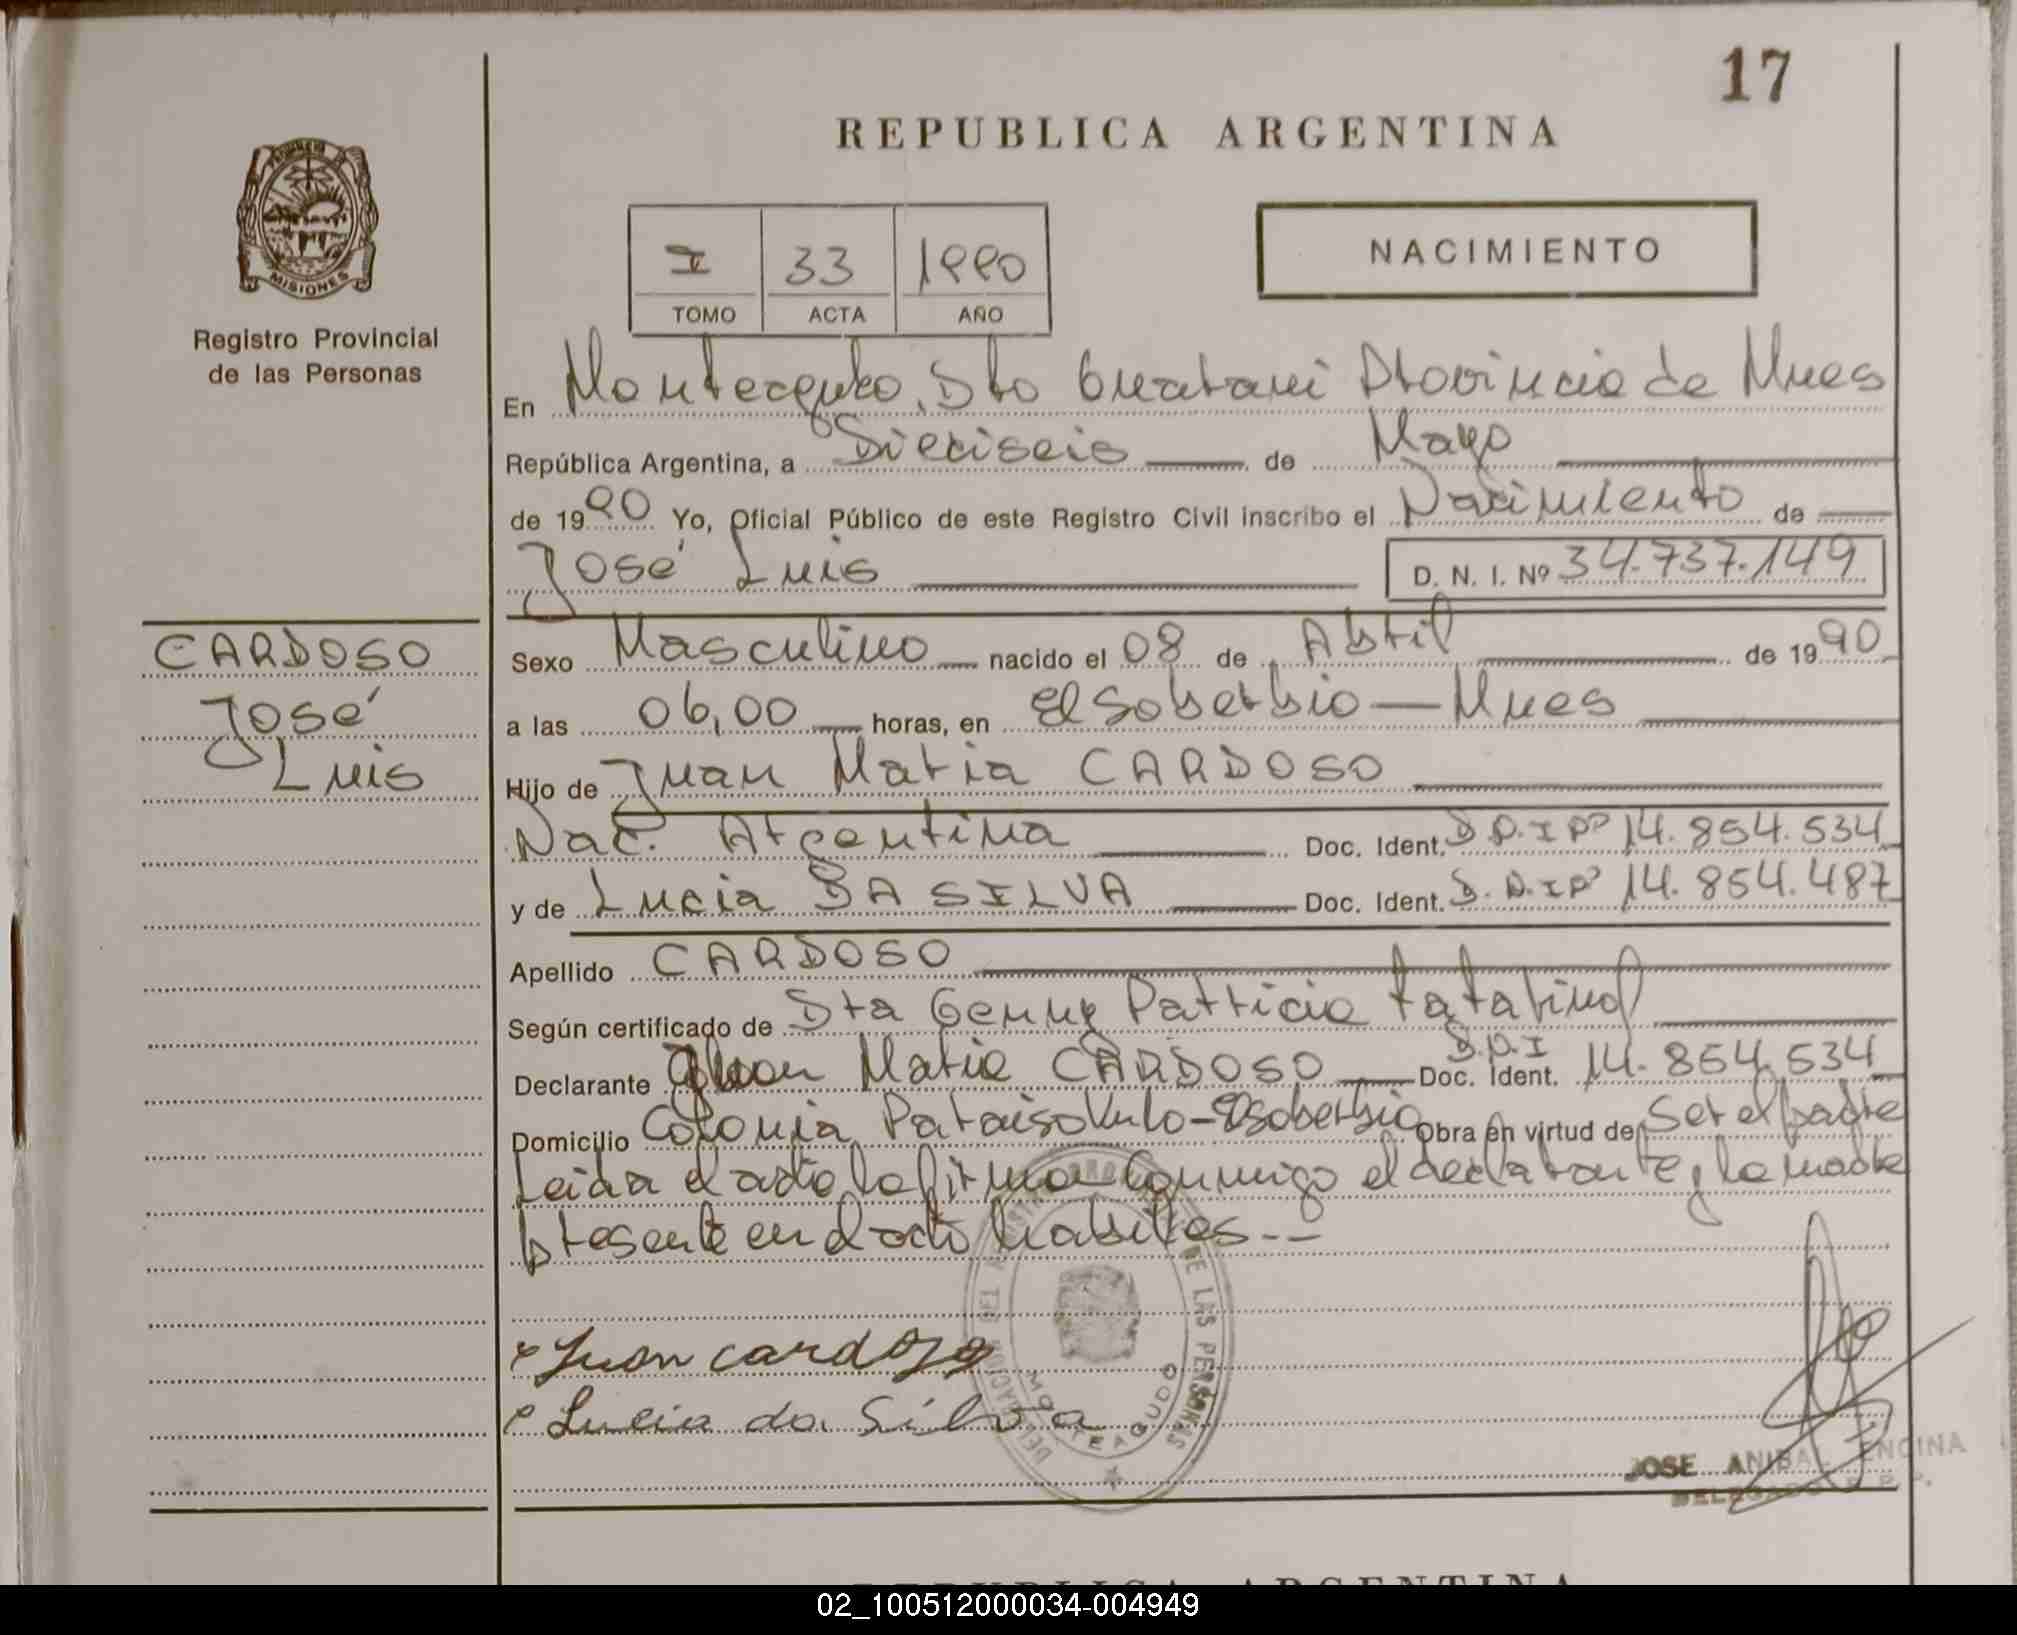 17
REPUBLICA ARGENTINA
PROVINCIA DE
MISIONES
Registro Provincial
de las Personas
I 33 1990
TOMO ACTA AÑO
NACIMIENTO
En Monteagudo, Dto Guaraní Provincia de Mnes
República Argentina, a Dieciseis de Mayo
de 1990 Yo, Oficial Público de este Registro Civil inscribo el Nacimiento de
José Luis D. N. I. Nº 34.737.149
CARDOSO
José
Luis
Sexo Masculino nacido el 08 de Abril de 1990
a las 06,00 horas, en El Soberbio — Mnes
Hijo de Juan Maria CARDOSO
Nac. Argentina Doc. Ident. D.N.I Nº 14.854.534
y de Lucia DA SILVA Doc. Ident. D.N.I Nº 14.854.487
Apellido CARDOSO
Según certificado de Dra Genny Patricia
Declarante Juan Maria CARDOSO D.N.I Doc. Ident. 14.854.534
Domicilio Colonia Paraiso Km10 - El Soberbio Obra en virtud de Ser el padre
Leida el acta la firma conmigo el declarante, la madre
presente en el acto
Juan cardozo
Lucia da Silva
DE LAS PERSONAS
MONTEAGUDO
JOSE ANIBAL ENCINA
DELEGADO R. P. P.
REPUBLICA ARGENTINA
02_100512000034-004949